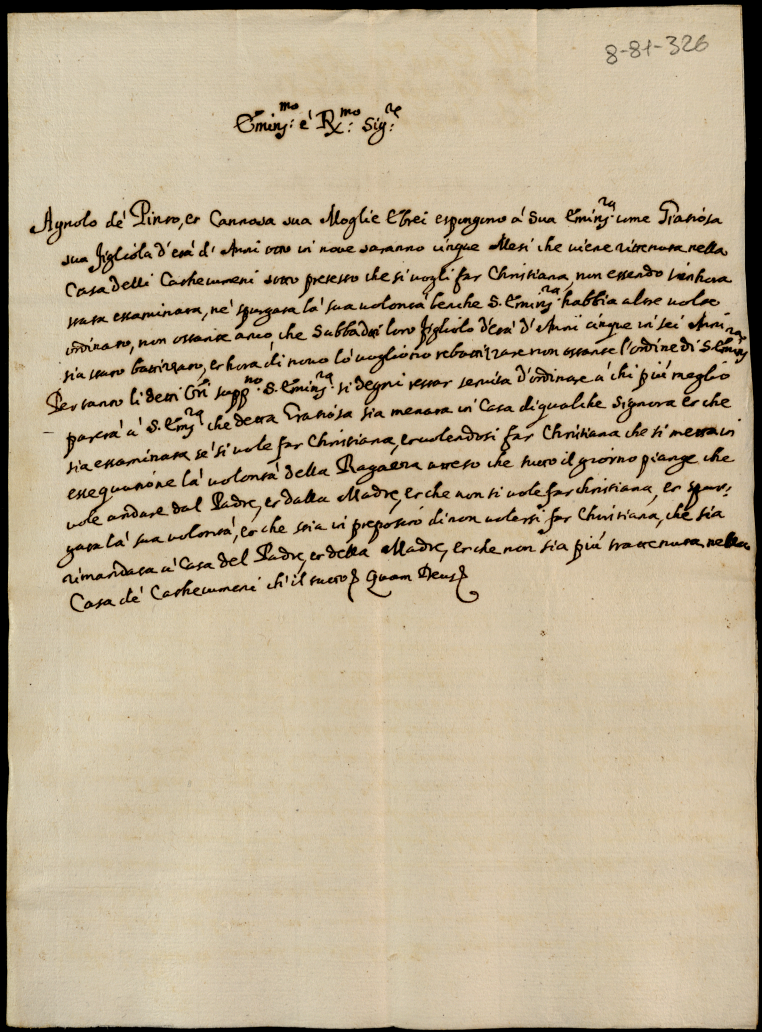 8-81-326
Emins:mo é Rx:mo Sig:re
Agnolo dé Pinto, et Cannosa sua Moglie Ebrei espongono á Sua Emins:za come Gratiosa
sua figliola d'età di Anni otto in nove saranno cinque Mesi che viene rittenuta nella
Casa delli Cathecumeni sotto pretesto che si vogli far Christiana, non essendo sin hora
stata essaminata, né spurgata la sua volontà benche S. Emins:za habbia altre volte
ordinato, non ostante anco, che Subbadai loro figliolo d'età d'Anni cinque in sei Anni
sia stato battizzato, et hora di novo lo vogliono rebattizzare non ostante l'ordine di S. Emins:za
Per tanto li detti Ori supp:no S. Emins:za si degni restar servita d'ordinare á chi più meglio
parerà á S. Ems:za che detta Gratiosa sia menata in Casa di qualche Signora et che
sia essaminata sé si vole far Christiana, et volendosi far Christiana che si metta in
essequutione la volontà della Ragazza atteso che tutto il giorno piange che
vole andare dal Padre, et dalla Madre, et che non si vole far christiana, et spur-
gata la sua volontà, et che stia in proposito di non volersi far Christiana, che sia
rimandata á Casa del Padre, et della Madre, et che non sia più trattenuta nella
Casa dé Cathecumeni ch'il tutto Quam Deus